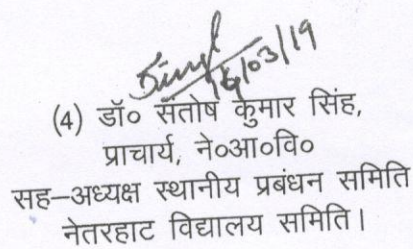 16/03/19
(4) डॉ० संतोष कुमार सिंह,
प्राचार्य, ने०आ०वि०
सह–अध्यक्ष स्थानीय प्रबंधन समिति
नेतरहाट विद्यालय समिति।